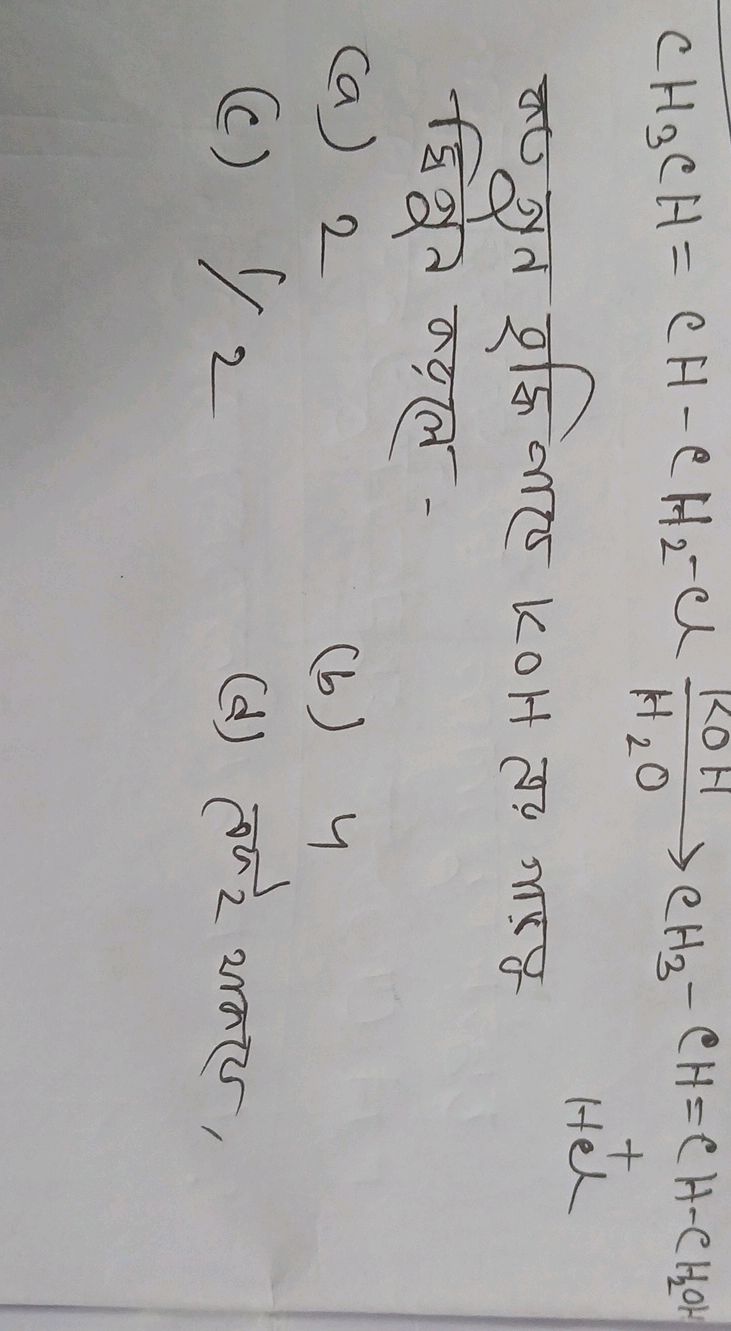 CH₃CH = CH - CH₂-Cl \(\xrightarrow[H_2O]{KOH}\) CH₃ - CH = CH - CH₂OH
+
HCl
কত গুন বৃদ্ধি পাবে KOH এর
দ্বিগুন করলে -
(a) 2 (b) 4
(c) 1/2 (d) একই থাকবে,